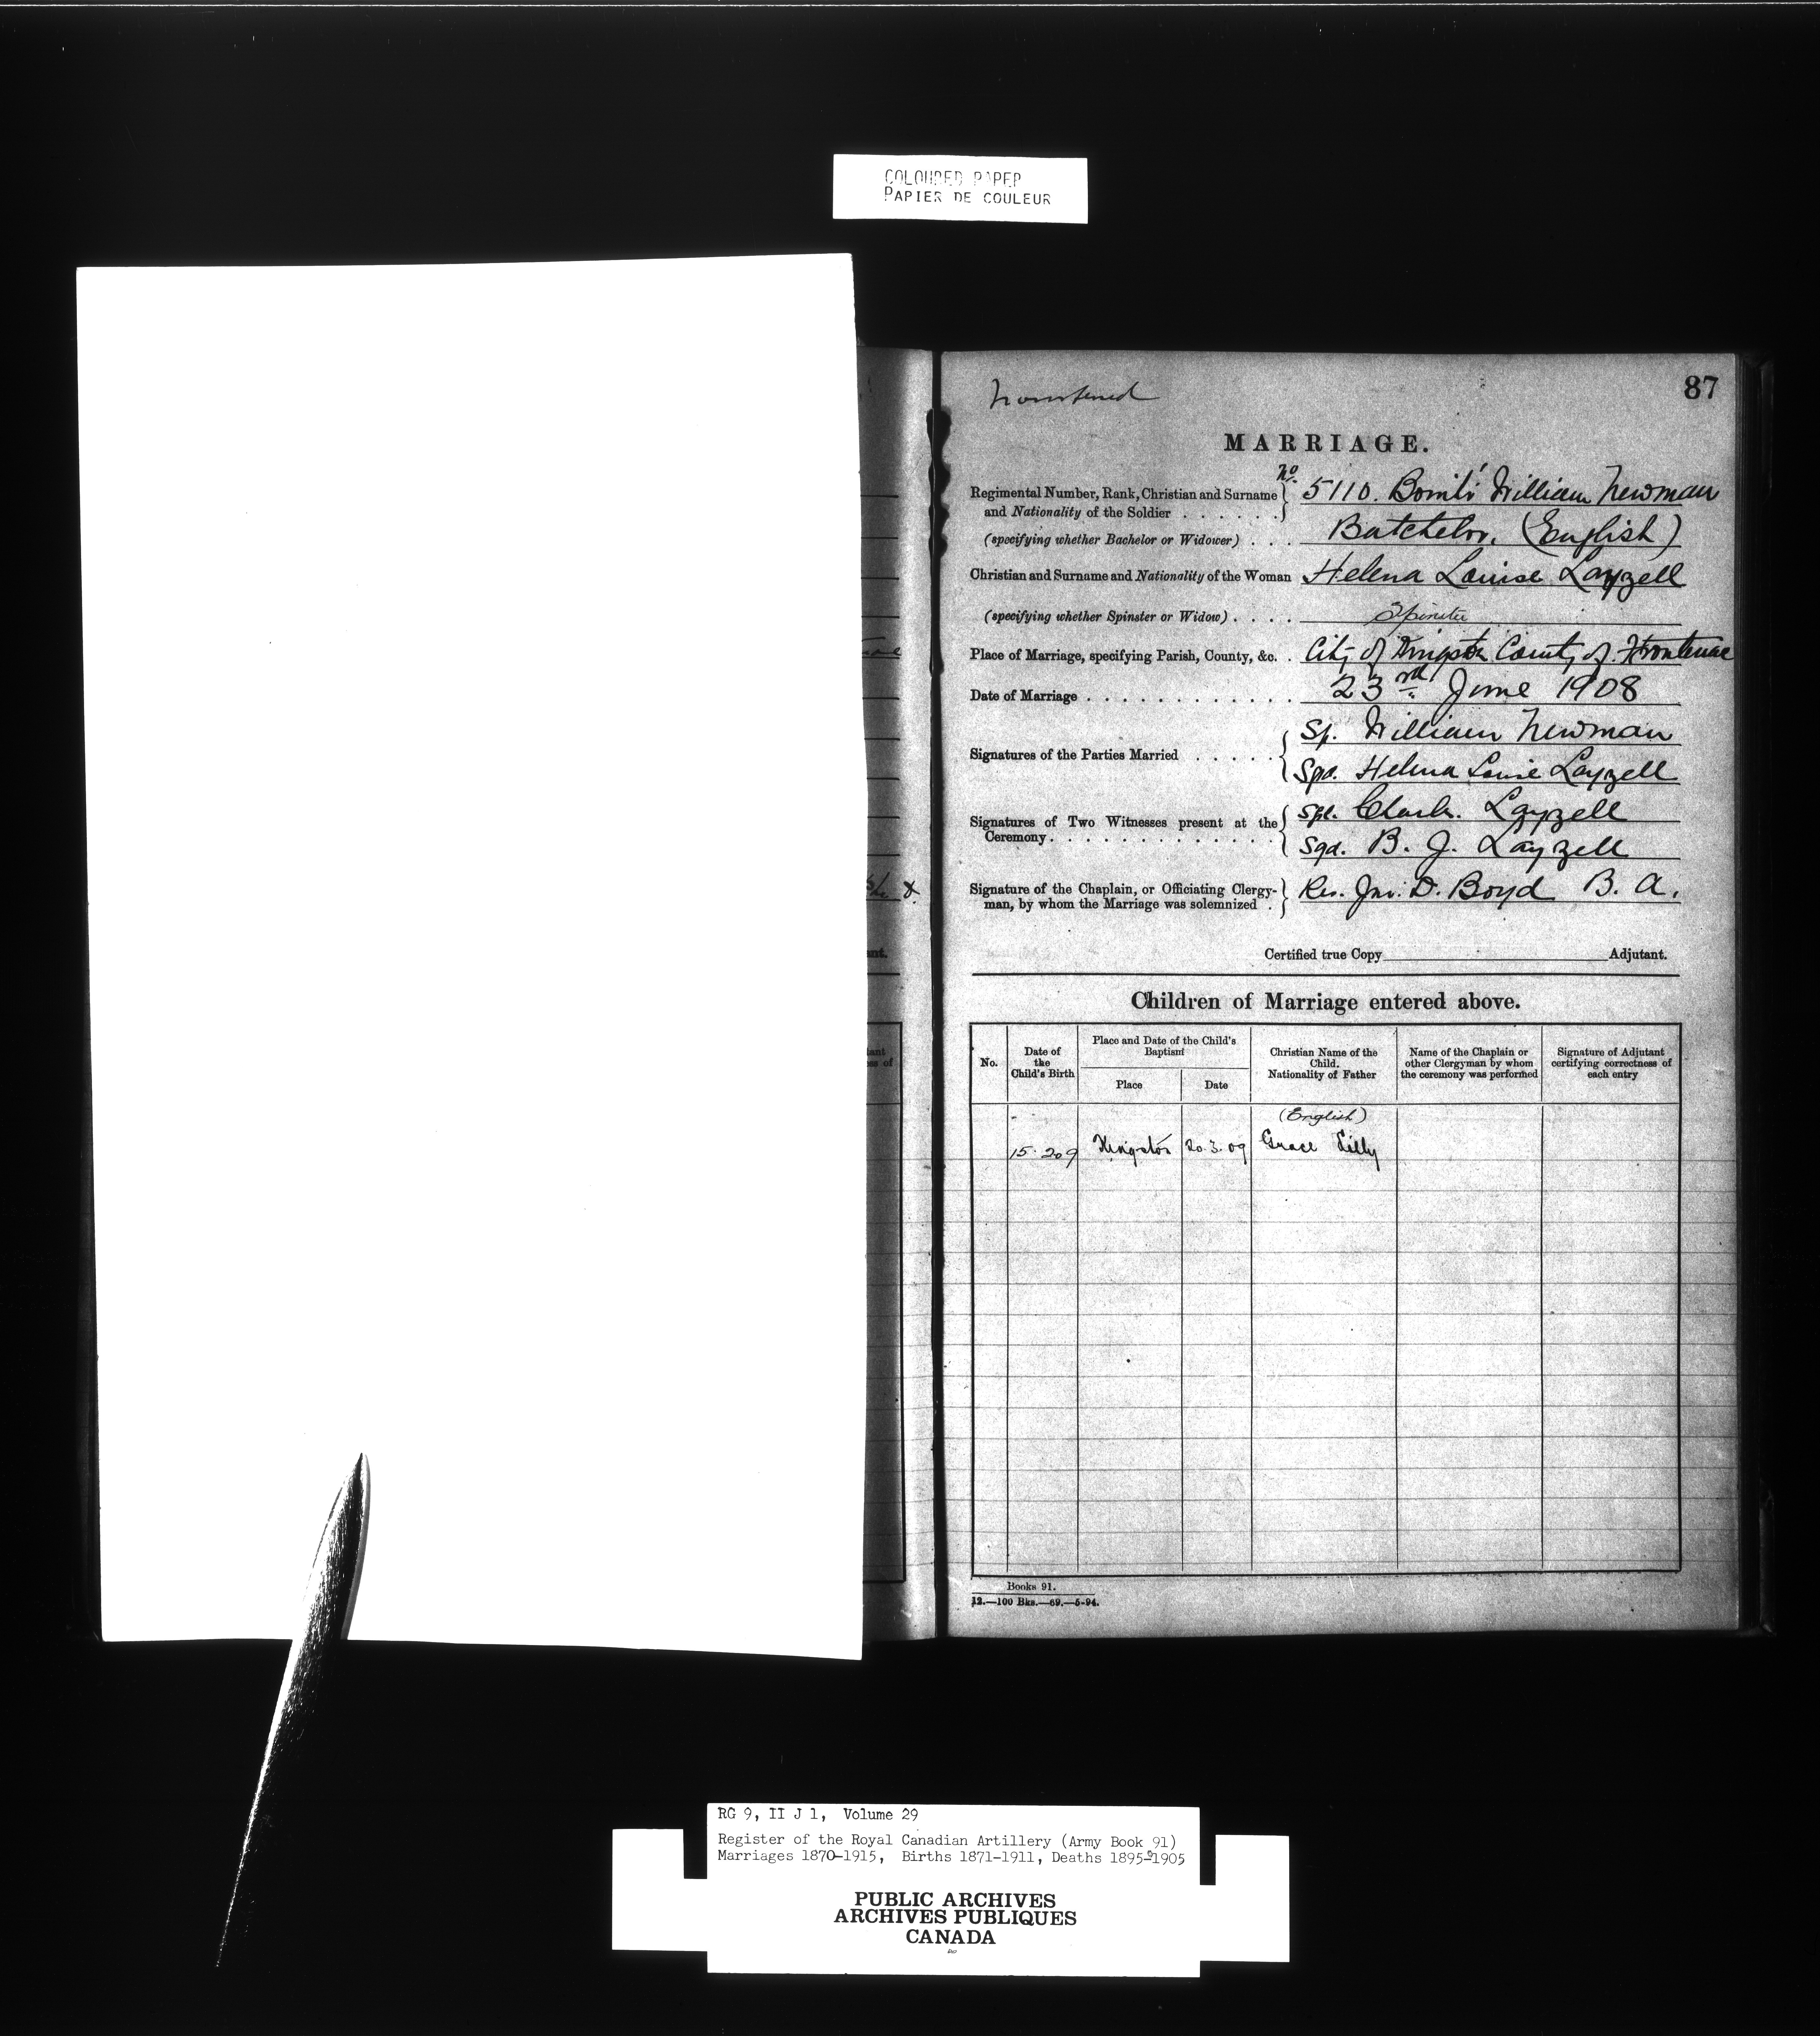 COLOURED PAPER
PAPIER DE COULEUR
87
MARRIAGE.
No.
Regimental Number, Rank, Christian and Surname and Nationality of the Soldier . . . . . . 5110. Bombr William Newman
(specifying whether Bachelor or Widower) . . . Batchelor. (English)
Christian and Surname and Nationality of the Woman Helena Louise Layzell
(specifying whether Spinster or Widow) . . . . Spinster
Place of Marriage, specifying Parish, County, &c. . City of Kingston County of Frontenac
Date of Marriage . . . . . . . . . . . . 23rd June 1908
Signatures of the Parties Married . . . . . William Newman
Helena Louise Layzell
Signatures of Two Witnesses present at the Ceremony . . . . . . . . . . . . . Layzell
Sgd. B. J. Layzell
Signature of the Chaplain, or Officiating Clergyman, by whom the Marriage was solemnized . Rev. Jno. D. Boyd B. A.
Certified true Copy Adjutant.
Children of Marriage entered above.
No.
Date of the Child's Birth
Place and Date of the Child's Baptism
Place
Date
Christian Name of the Child. Nationality of Father
Name of the Chaplain or other Clergyman by whom the ceremony was performed
Signature of Adjutant certifying correctness of each entry
(English)
15.2.09 Kingston 20.3.09 Grace Lilly
Books 91.
12.—100 Bks.—69.—5-94.
RG 9, II J 1, Volume 29
Register of the Royal Canadian Artillery (Army Book 91)
Marriages 1870-1915, Births 1871-1911, Deaths 1895-1905
PUBLIC ARCHIVES
ARCHIVES PUBLIQUES
CANADA